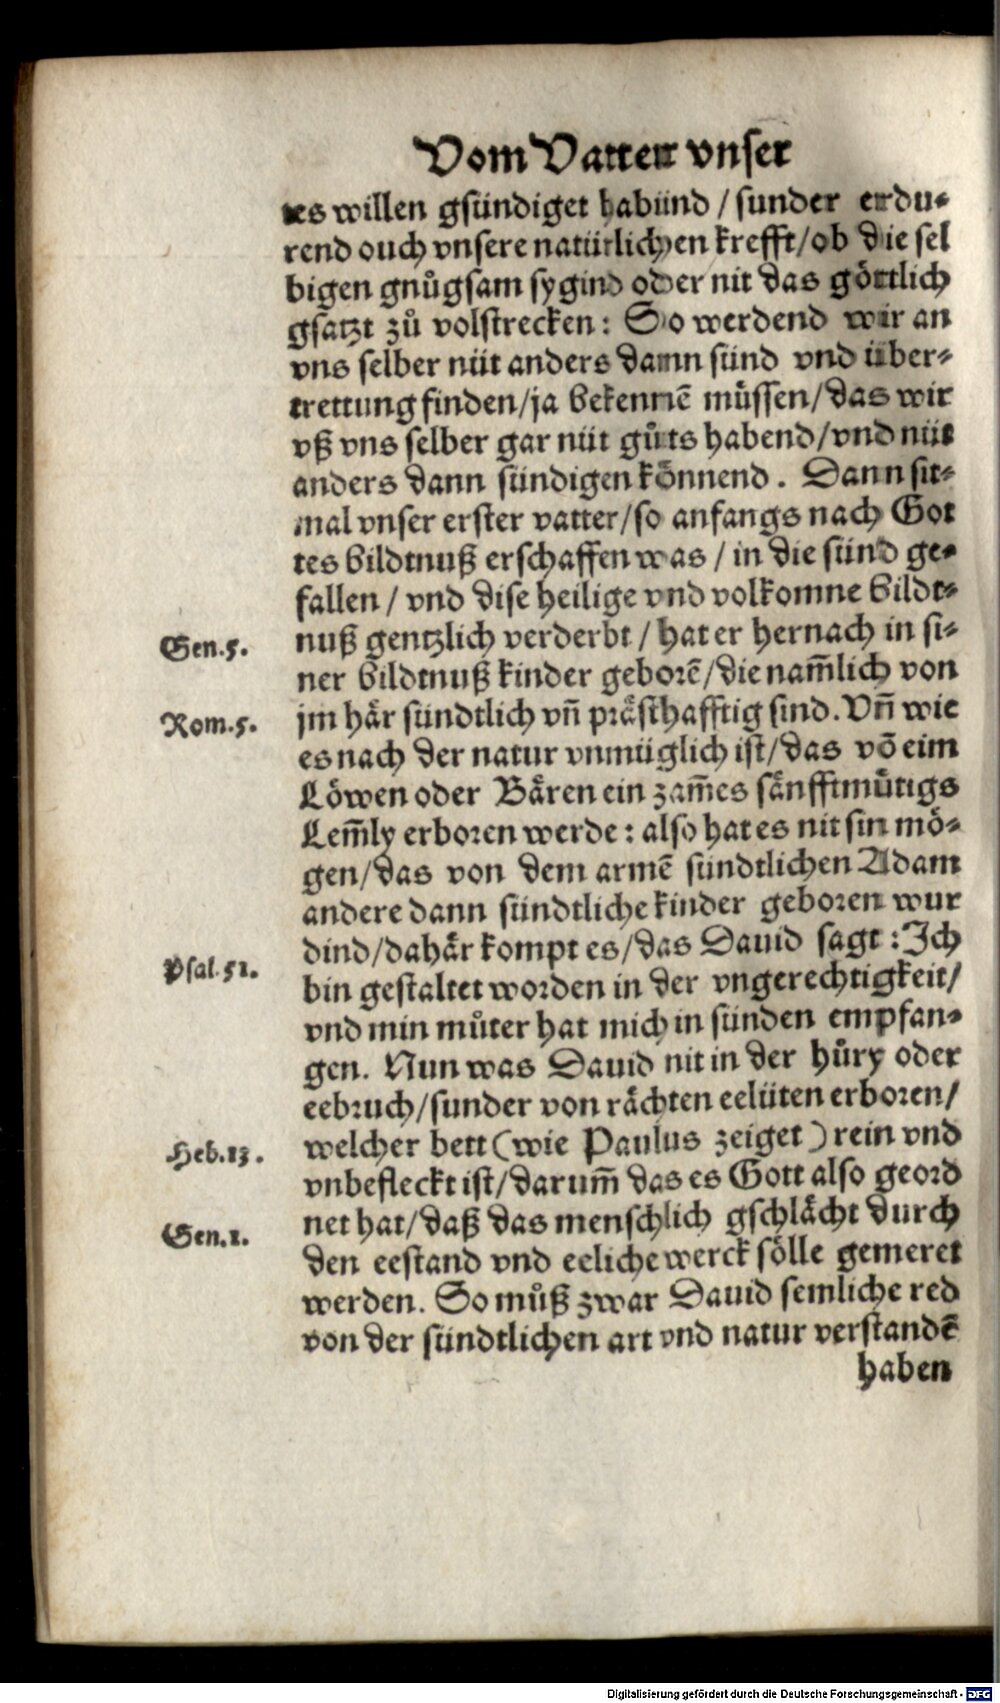 Vom Vatter vnser
tes willen gsündiget habind / sunder erdu⸗
rend ouch vnsere natürlichen krefft / ob die sel
bigen gnůgsam sygind oder nit das göttlich
gsatzt zů volstrecken: So werdend wir an
vns selber nüt anders dann sünd vnd über⸗
trettung finden / ja bekennē müssen / das wir
vß vns selber gar nüt gůts habend / vnd nüt
anders dann sündigen könnend. Dann sit⸗
mal vnser erster vatter / so anfangs nach Got
tes bildtnuß erschaffen was / in die sünd ge⸗
fallen / vnd dise heilige vnd volkomne bildt⸗
Gen.5. nuß gentzlich verderbt / hat er hernach in si⸗
ner bildtnuß kinder geborē / die nam̄lich von
Rom.5. jm här sündtlich vn̄ prästhafftig sind. Vn̄ wie
es nach der natur vnmüglich ist / das vō eim
Löwen oder Bären ein zam̄es sänfftmütigs
Lem̄ly erboren werde: also hat es nit sin mö⸗
gen / das von dem armē sündtlichen Adam
andere dann sündtliche kinder geboren wur
dind / dahär kompt es / das Dauid sagt: Ich
Psal.51. bin gestaltet worden in der vngerechtigkeit /
vnd min můter hat mich in sünden empfan⸗
gen. Nun was Dauid nit in der hůry oder
eebruch / sunder von rächten eelüten erboren /
Heb.13. welcher bett (wie Paulus zeiget) rein vnd
vnbefleckt ist / darum̄ das es Gott also geord
Gen.1. net hat / daß das menschlich gschlächt durch
den eestand vnd eeliche werck sölle gemeret
werden. So můß zwar Dauid semliche red
von der sündtlichen art vnd natur verstandē
haben
Digitalisierung gefördert durch die Deutsche Forschungsgemeinschaft - DFG